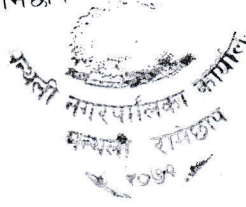 मन्थली नगरपालिका कार्यालय
मन्थली रामेछाप
२०७१